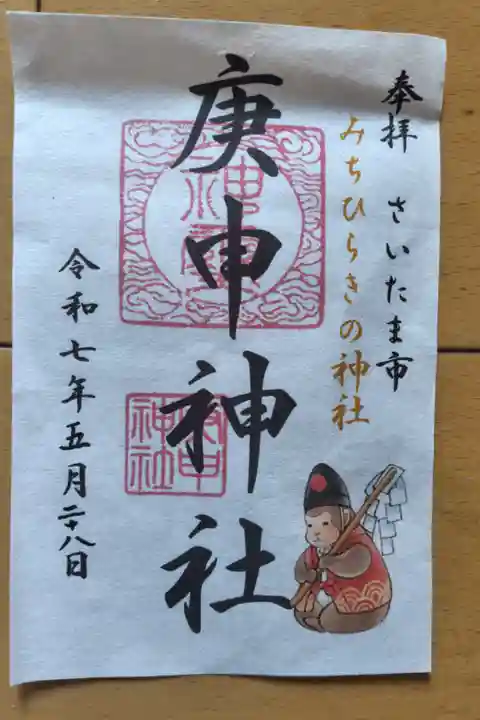 奉拝 さいたま市
みちひらきの神社
庚申神社
庚申
神社
令和七年五月二十八日